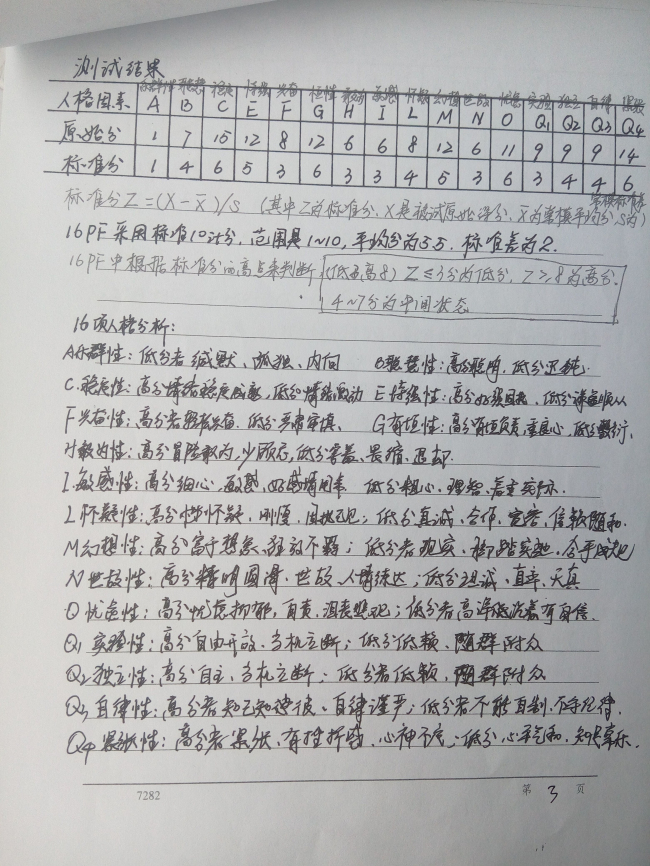 测试结果
人格因素 A B C E F G H I L M N O Q1 Q2 Q3 Q4
原始分 1 7 15 12 8 12 6 6 8 12 6 11 9 9 9 14
标准分 1 4 6 5 3 6 3 3 4 5 3 6 3 4 4 6
标准分Z=(X-X̄)/S (其中Z为标准分,X是被试原始得分,X̄为常模平均分,S为常模标准差)
16PF采用标准10计分,范围是1~10,平均分为5.5,标准差为2.
16PF中根据标准分的高点来判断(低3高8) Z≤3分为低分,Z≥8为高分.
4~7分为中间状态
16项人格分析:
A乐群性:低分者缄默、孤独、内向 B聪慧性:高分聪明,低分迟钝.
C.稳定性:高分情绪稳定成熟,低分情绪激动 E恃强性:高分好强固执,低分谦虚顺从
F兴奋性:高分者轻松兴奋,低分严肃审慎、 G有恒性:高分有恒负责重良心,低分敷衍、
H敢为性:高分冒险敢为,少顾忌,低分害羞、畏缩、退却.
I.敏感性:高分细心,敏感,好感情用事 低分粗心,理智、着重实际.
L怀疑性:高分性刚怀疑,刚愎,固执己见;低分真诚、合作、宽容、信赖随和.
M幻想性:高分富于想象、狂放不羁;低分者现实、脚踏实地、合乎成规
N世故性:高分精明圆滑、世故、人情练达;低分坦诚、直率、天真
O忧虑性:高分忧虑抑郁,自责,沮丧悲观;低分者安详沉着有自信.
Q1实验性:高分自由开放、当机立断;低分低赖、随群附众
Q2独立性:高分自主、当机立断;低分者低赖,随群附众
Q3自律性:高分者知己知彼、自律谨严;低分者不能自制、不守纪律.
Q4紧张性:高分者紧张、有挫折感、心神不定;低分心平气和、知足常乐.
7282
第 3 页